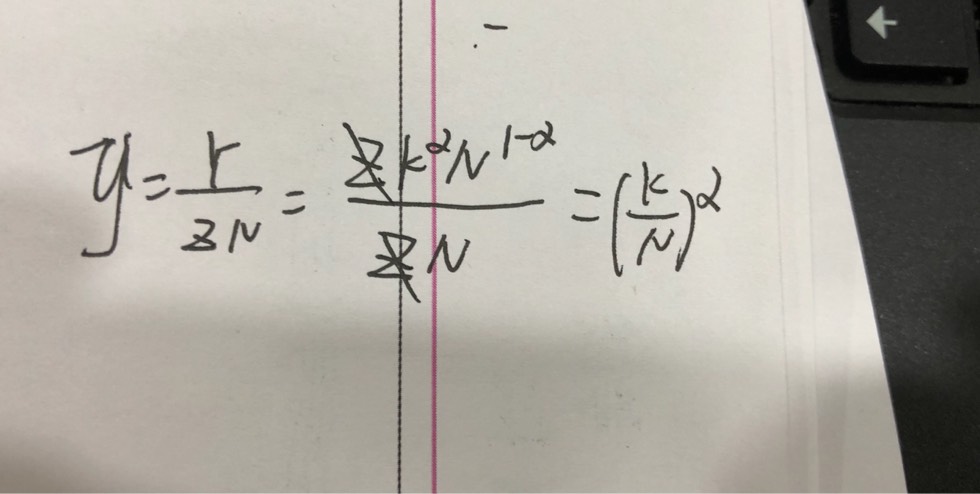 y = Y / zN = zk^αN^{1-α} / zN = (k/N)^α